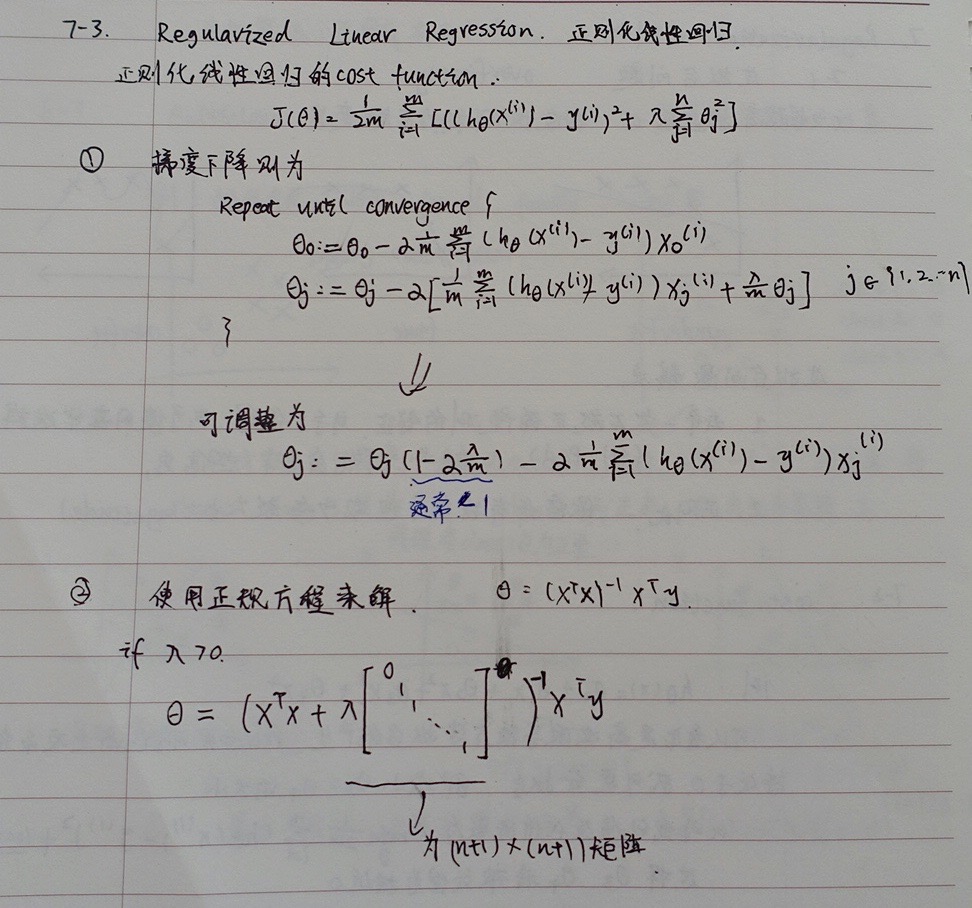 7-3. Regularized Linear Regression. 正则化线性回归.
正则化线性回归的cost function:
J(θ) = 1/2m Σ_{i=1}^{m} [((hθ(x^(i)) - y^(i))² + λ Σ_{j=1}^{n} θj²]
① 梯度下降则为
Repeat until convergence {
θ0 := θ0 - α 1/m Σ_{i=1}^{m} (hθ(x^(i)) - y^(i)) x0^(i)
θj := θj - α [1/m Σ_{i=1}^{m} (hθ(x^(i)) - y^(i)) xj^(i) + λ/m θj] j ∈ {1,2...n}
}
⇓
可调整为
θj := θj (1 - α λ/m) - α 1/m Σ_{i=1}^{m} (hθ(x^(i)) - y^(i)) xj^(i)
通常<1
② 使用正规方程来解. θ = (XᵀX)⁻¹ Xᵀy.
if λ>0.
θ = (XᵀX + λ [0 1 1 ⋱ 1])⁻¹ Xᵀy
为(n+1)×(n+1)矩阵